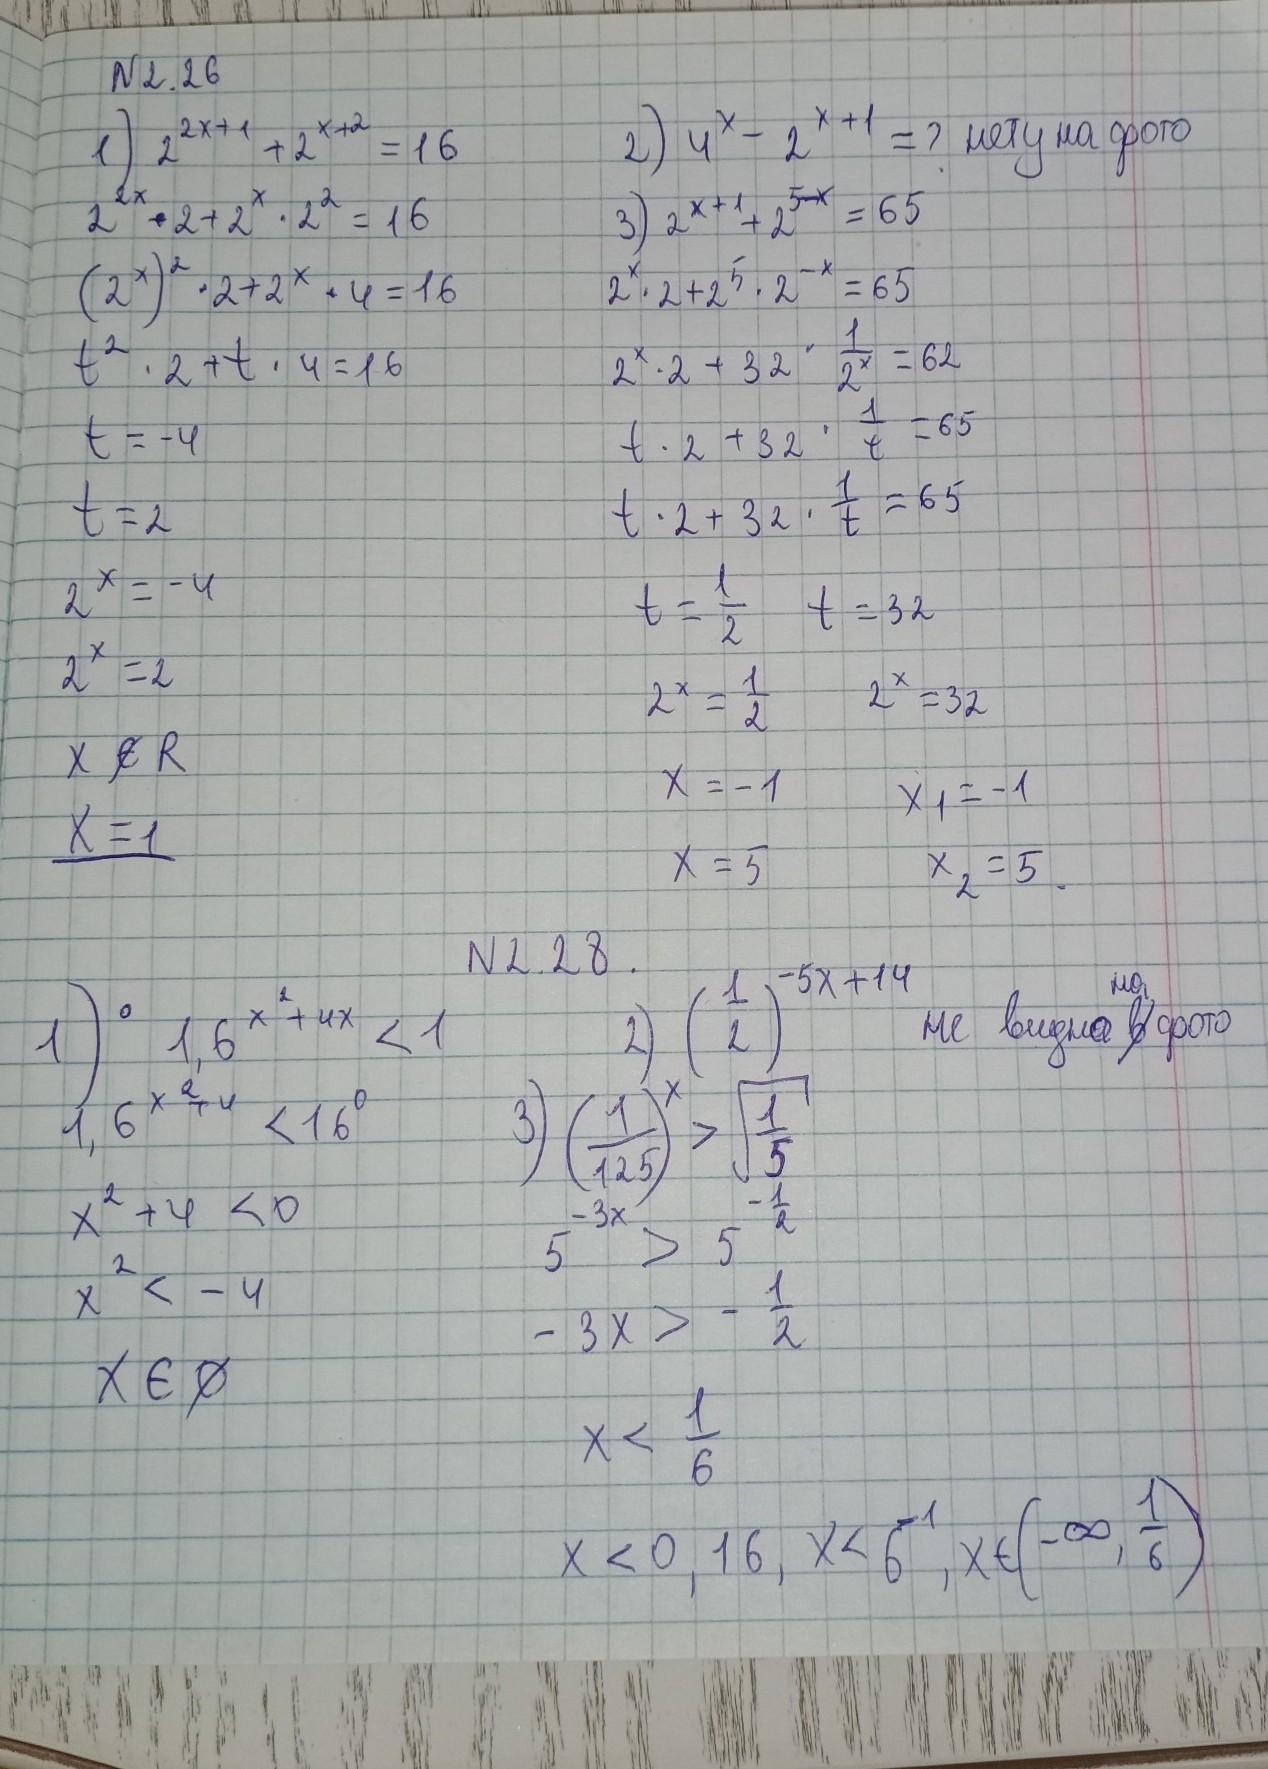 N2.26
1) 2^{2x+1} + 2^{x+2} = 16
2^{2x} · 2 + 2^x · 2^2 = 16
(2^x)^2 · 2 + 2^x · 4 = 16
t^2 · 2 + t · 4 = 16
t = -4
t = 2
2^x = -4
2^x = 2
x ∉ R
x = 1
2) 4^x - 2^{x+1} = ? нету на фото
3) 2^{x+1} + 2^{5-x} = 65
2^x · 2 + 2^5 · 2^{-x} = 65
2^x · 2 + 32 · 1/2^x = 62
t · 2 + 32 · 1/t = 65
t · 2 + 32 · 1/t = 65
t = 1/2 t = 32
2^x = 1/2 2^x = 32
x = -1 x_1 = -1
x = 5 x_2 = 5.
N2.28.
1) ° 1,6^{x^2+4x} < 1
1,6^{x^2+4} < 16^0
x^2 + 4 < 0
x^2 < -4
x ∈ ∅
2) (1/2)^{-5x+14} не видно на фото
3) (1/125)^x > √(1/5)
5^{-3x} > 5^{-1/2}
-3x > -1/2
x < 1/6
x < 0,16, x < 6^{-1}, x ∈ (-∞, 1/6)